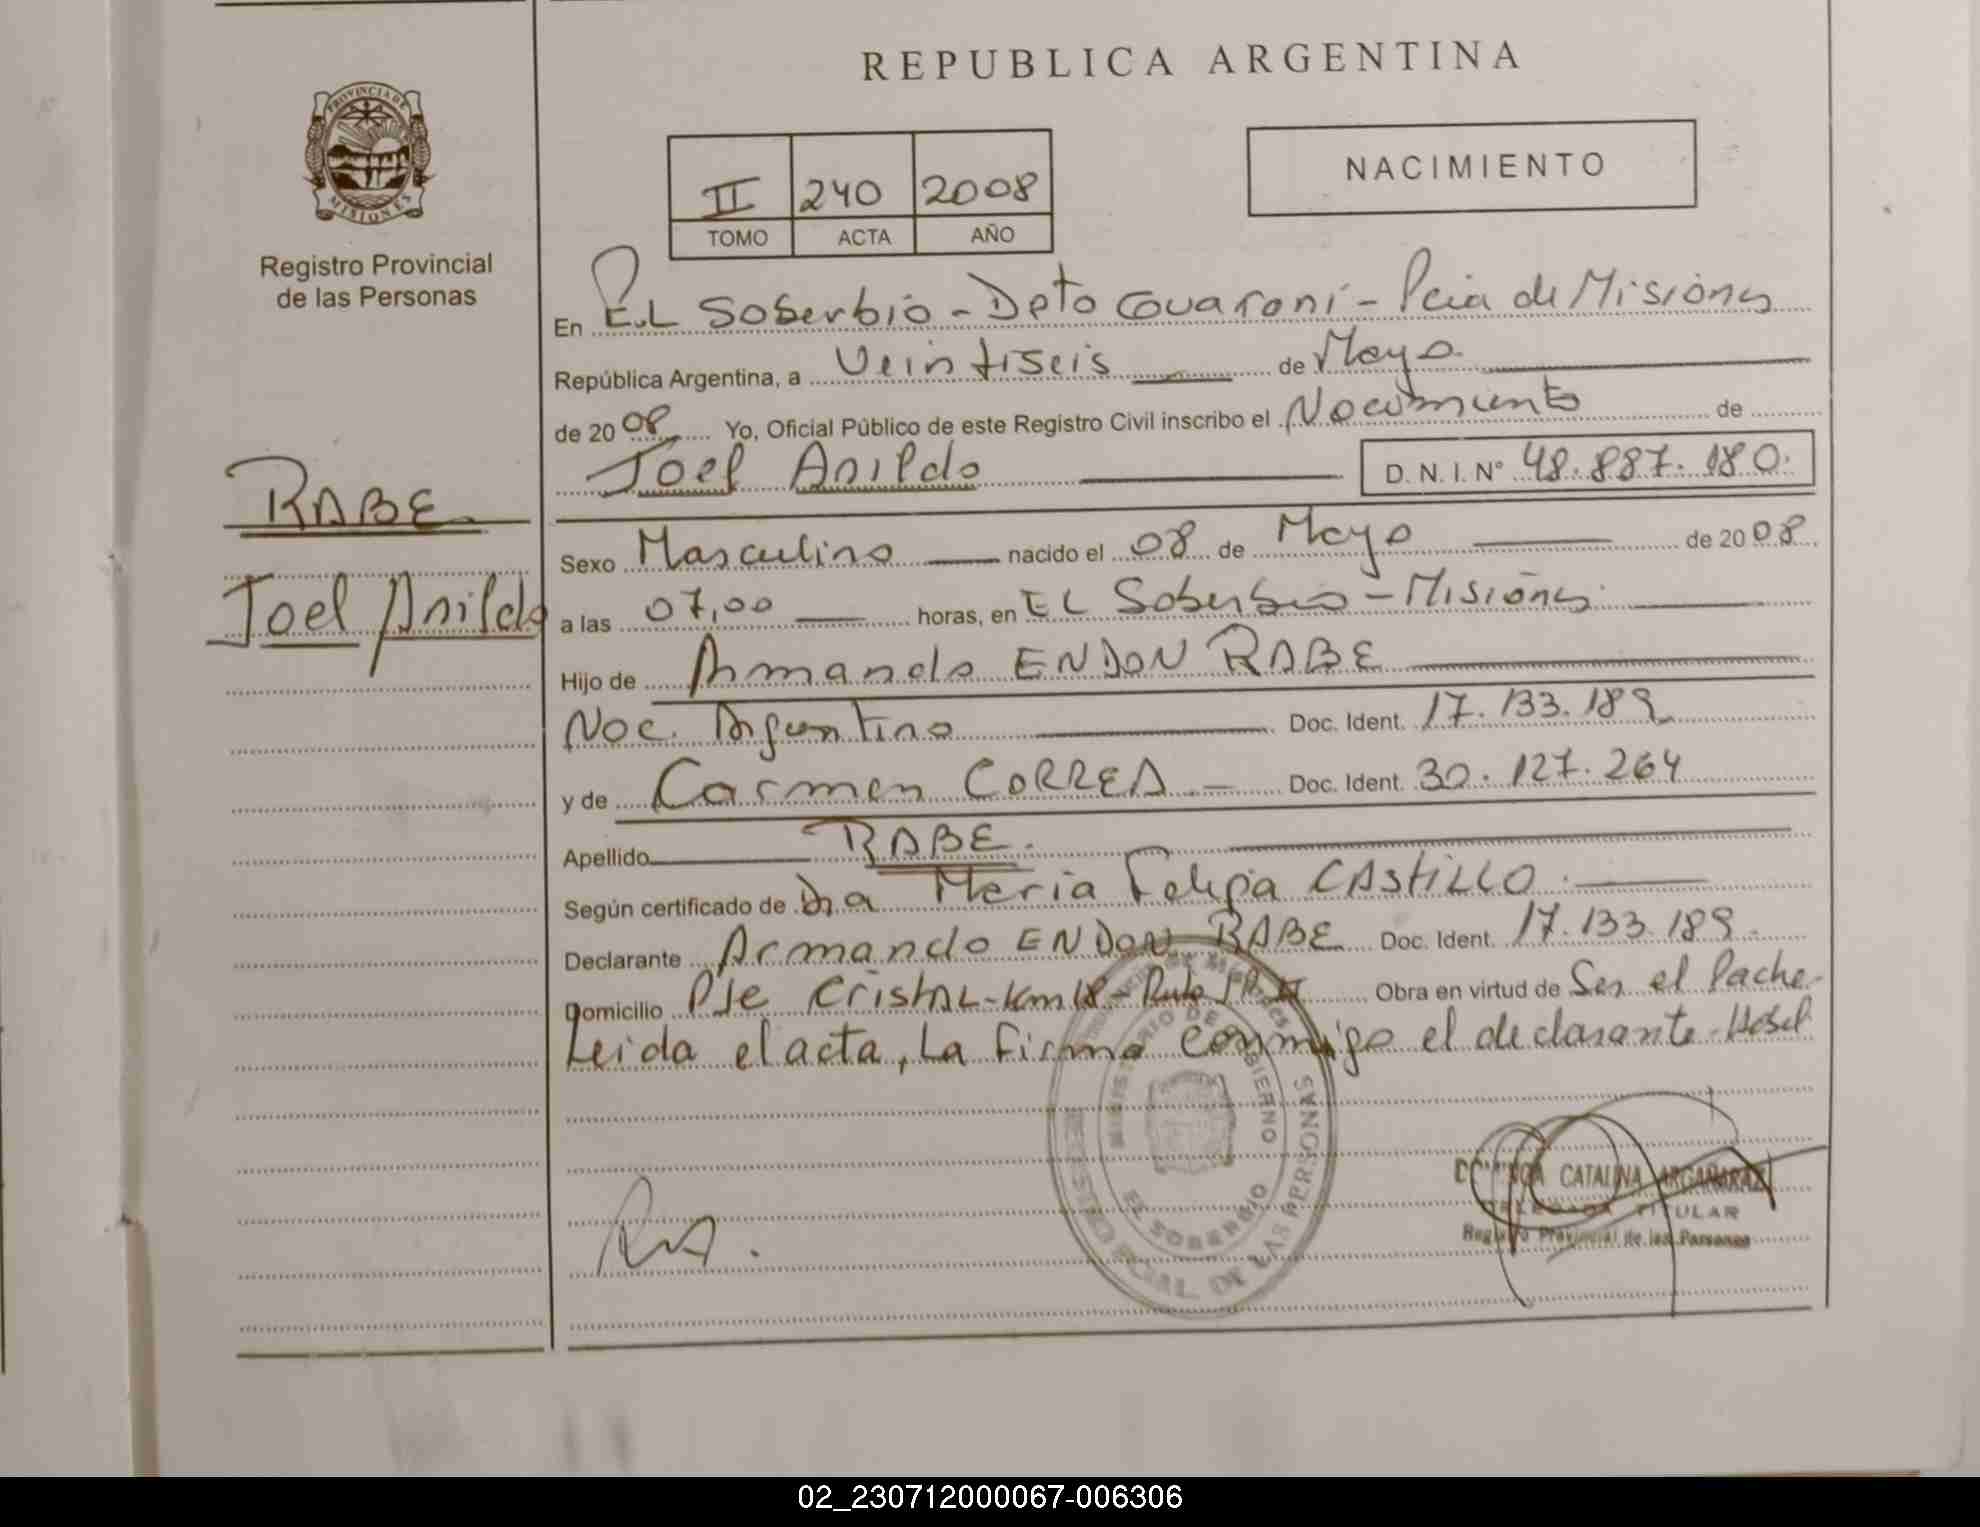 REPUBLICA ARGENTINA
PROVINCIA DE
MISIONES
Registro Provincial
de las Personas
II 240 2008
TOMO ACTA AÑO
NACIMIENTO
En EL Soberbio - Dpto Guaraní - Pcia de Misiones
República Argentina, a Veintiseis de Mayo
de 2008 Yo, Oficial Público de este Registro Civil inscribo el Nacimiento de
Joel Anildo D. N. I. N° 48.887.180.
RABE
Joel Anildo
Sexo Masculino nacido el 08 de Mayo de 2008
a las 07,00 horas, en EL Soberbio - Misiones
Hijo de Armando ENDON RABE
Nac. Argentino Doc. Ident. 17.133.189
y de Carmen CORREA Doc. Ident. 30.127.264
Apellido RABE.
Según certificado de Dra Maria Felipa CASTILLO
Declarante Armando ENDON RABE Doc. Ident. 17.133.189.
Domicilio Pje Cristal - Km 18 - Ruta Obra en virtud de Ser el Padre
Leida el acta, La firma conmigo el declarante
MINISTERIO DE GOBIERNO
EL SOBERBIO
DE LAS PERSONAS
CATALINA ARGAÑARAZ
DELEGADA TITULAR
Registro Provincial de las Personas
02_230712000067-006306